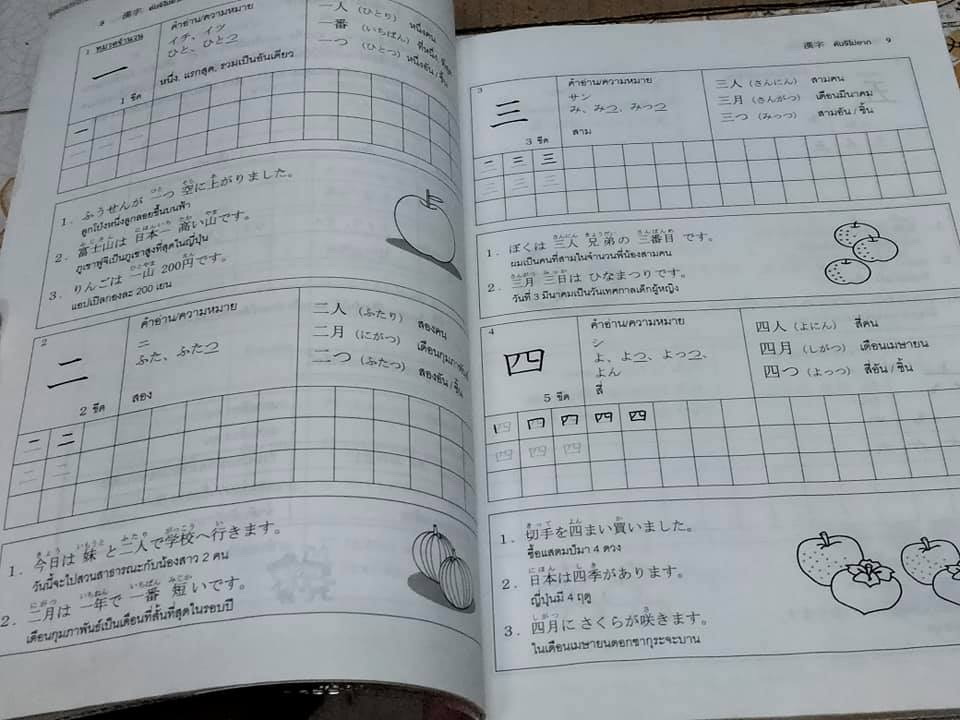 8 漢字
1 หมวดจำนวน
一
1 ขีด
คำอ่าน/ความหมาย
イチ、イツ
ひと、ひとつ
หนึ่ง, แรกสุด, รวมเป็นอันเดียว
一人 (ひとり) หนึ่งคน
一番 (いちばん) ที่หนึ่ง, ที่สุด
一つ (ひとつ) หนึ่งอัน / ชิ้น
1. ふうせんが 一つ 空に上がりました。
ลูกโป่งหนึ่งลูกลอยขึ้นบนฟ้า
2. 富士山は 日本一 高い山です。
ภูเขาฟูจิเป็นภูเขาสูงที่สุดในญี่ปุ่น
3. りんごは 一山 200円です。
แอปเปิลกองละ 200 เยน
2
二
2 ขีด
คำอ่าน/ความหมาย
ニ
ふた、ふたつ
สอง
二人 (ふたり) สองคน
二月 (にがつ) เดือนกุมภาพันธ์
二つ (ふたつ) สองอัน / ชิ้น
二 二
1. 今日は 妹 と二人で学校へ行きます。
วันนี้จะไปสวนสาธารณะกับน้องสาว 2 คน
2. 二月は 一年で 一番 短いです。
เดือนกุมภาพันธ์เป็นเดือนที่สั้นที่สุดในรอบปี
漢字 คันจิไม่ยาก 9
3
三
3 ขีด
คำอ่าน/ความหมาย
サン
み、みつ、みっつ
สาม
三人 (さんにん) สามคน
三月 (さんがつ) เดือนมีนาคม
三つ (みっつ) สามอัน / ชิ้น
1. ぼくは 三人 兄弟の 三番目 です。
ผมเป็นคนที่สามในจำนวนพี่น้องสามคน
2. 三月 三日は ひなまつりです。
วันที่ 3 มีนาคมเป็นวันเทศกาลเด็กผู้หญิง
4
四
5 ขีด
คำอ่าน/ความหมาย
シ
よ、よつ、よっつ、
よん
สี่
四人 (よにん) สี่คน
四月 (しがつ) เดือนเมษายน
四つ (よっつ) สี่อัน / ชิ้น
1. 切手を四まい買いました。
ซื้อแสตมป์มา 4 ดวง
2. 日本は四季があります。
ญี่ปุ่นมี 4 ฤดู
3. 四月に さくらが咲きます。
ในเดือนเมษายนดอกซากุระจะบาน